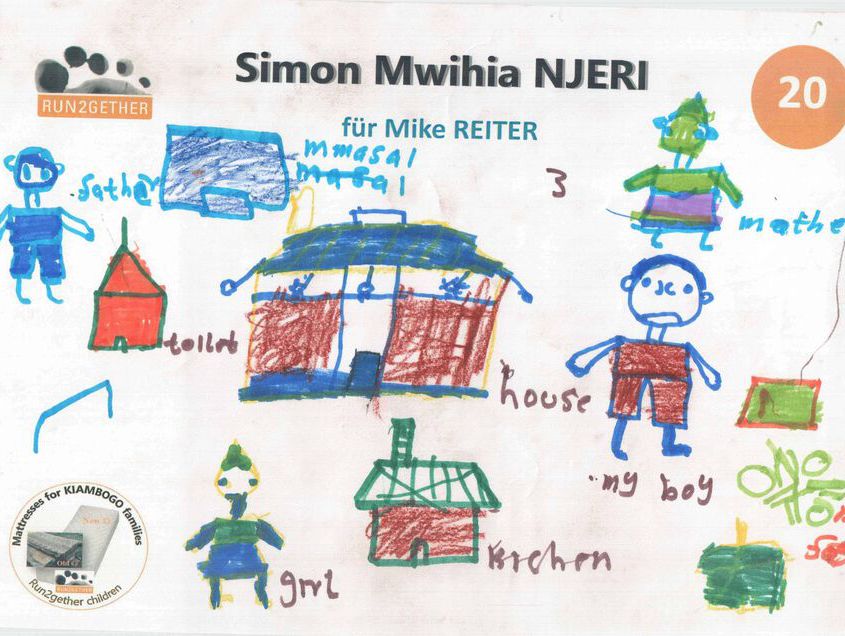 Simon Mwihia NJERI
20
RUN2GETHER
für Mike REITER
mmasai
masai
father
3
mothe
toilet
house
my boy
Mattresses for KIAMBOGO families
New
Old
RUN2GETHER
Run2gether children
girl
kichen